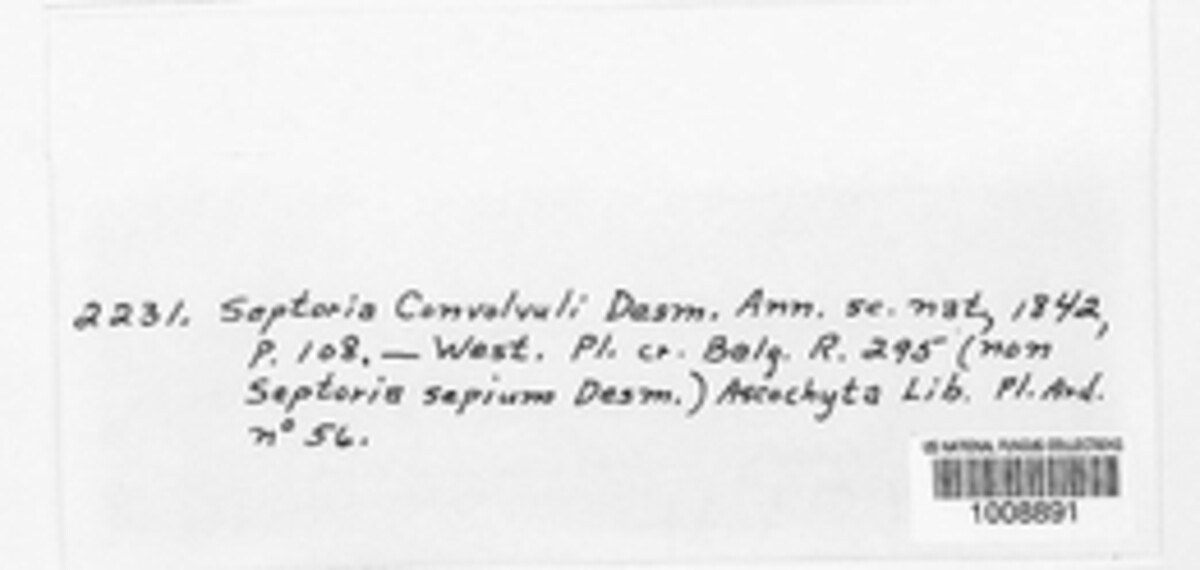 2231. Septoria Convolvuli Desm. Ann. sc. nat, 1842,
P. 108. — West. Pl. cr. Belg. R. 295 (non
Septoria sepium Desm.) Ascochyta Lib. Pl. Ard.
nº 56.
US NATIONAL FUNGUS COLLECTIONS
1008891